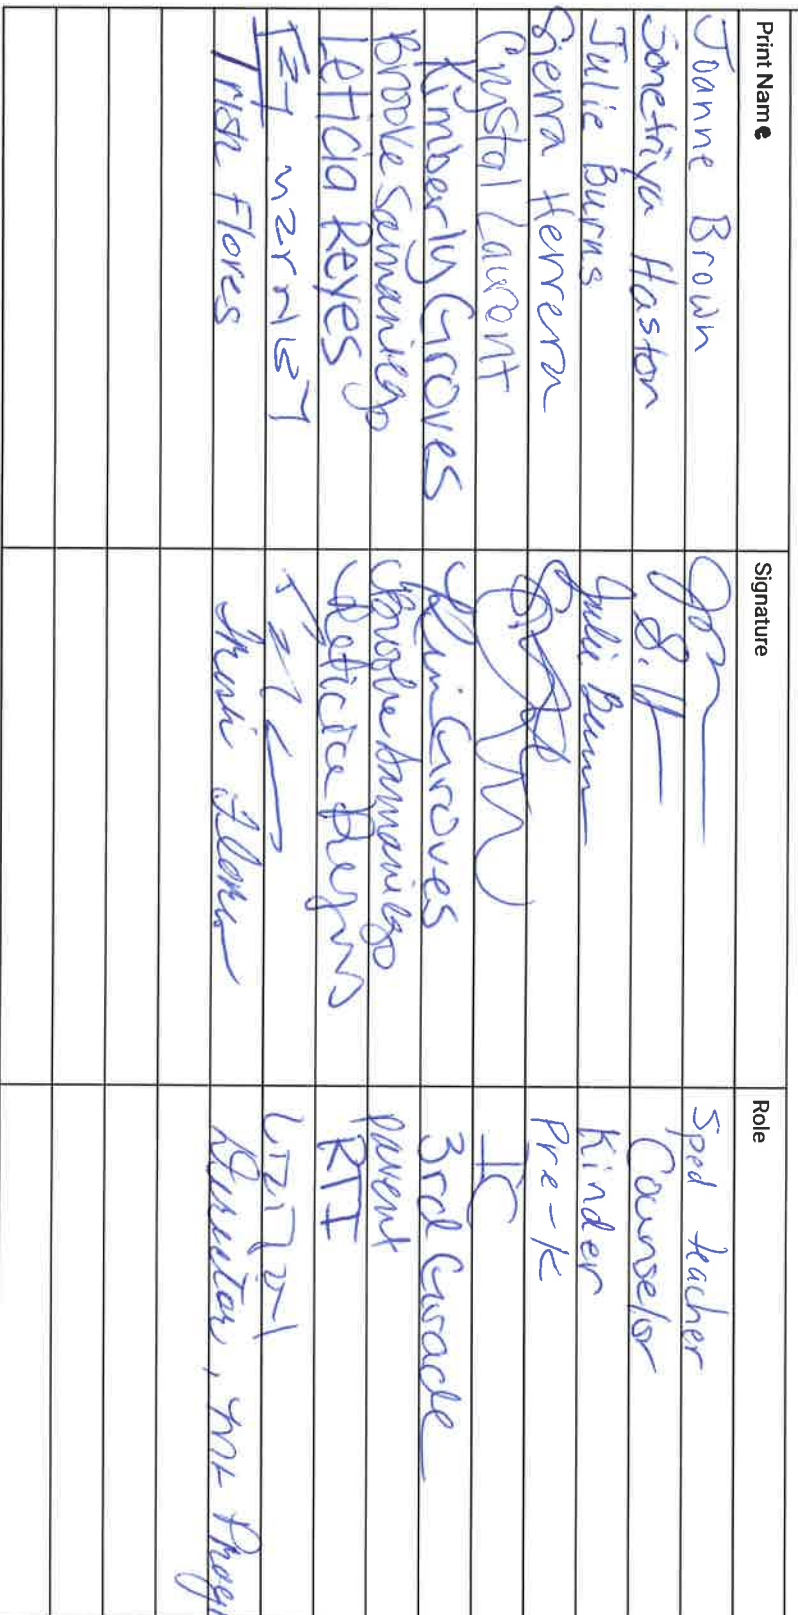 Print Name Signature Role
Joanne Brown Sped teacher
Sonetriya Haston S.H Counselor
Julie Burns Julie Burns Kinder
Sierra Herrera Pre-K
Crystal Laurent IC
Kimberly Groves Kim Groves 3rd Grade
Brooke Samaniego Brooke Samaniego parent
Leticia Reyes Leticia Reyes RTI
Trish Flores Trish Flores Director,